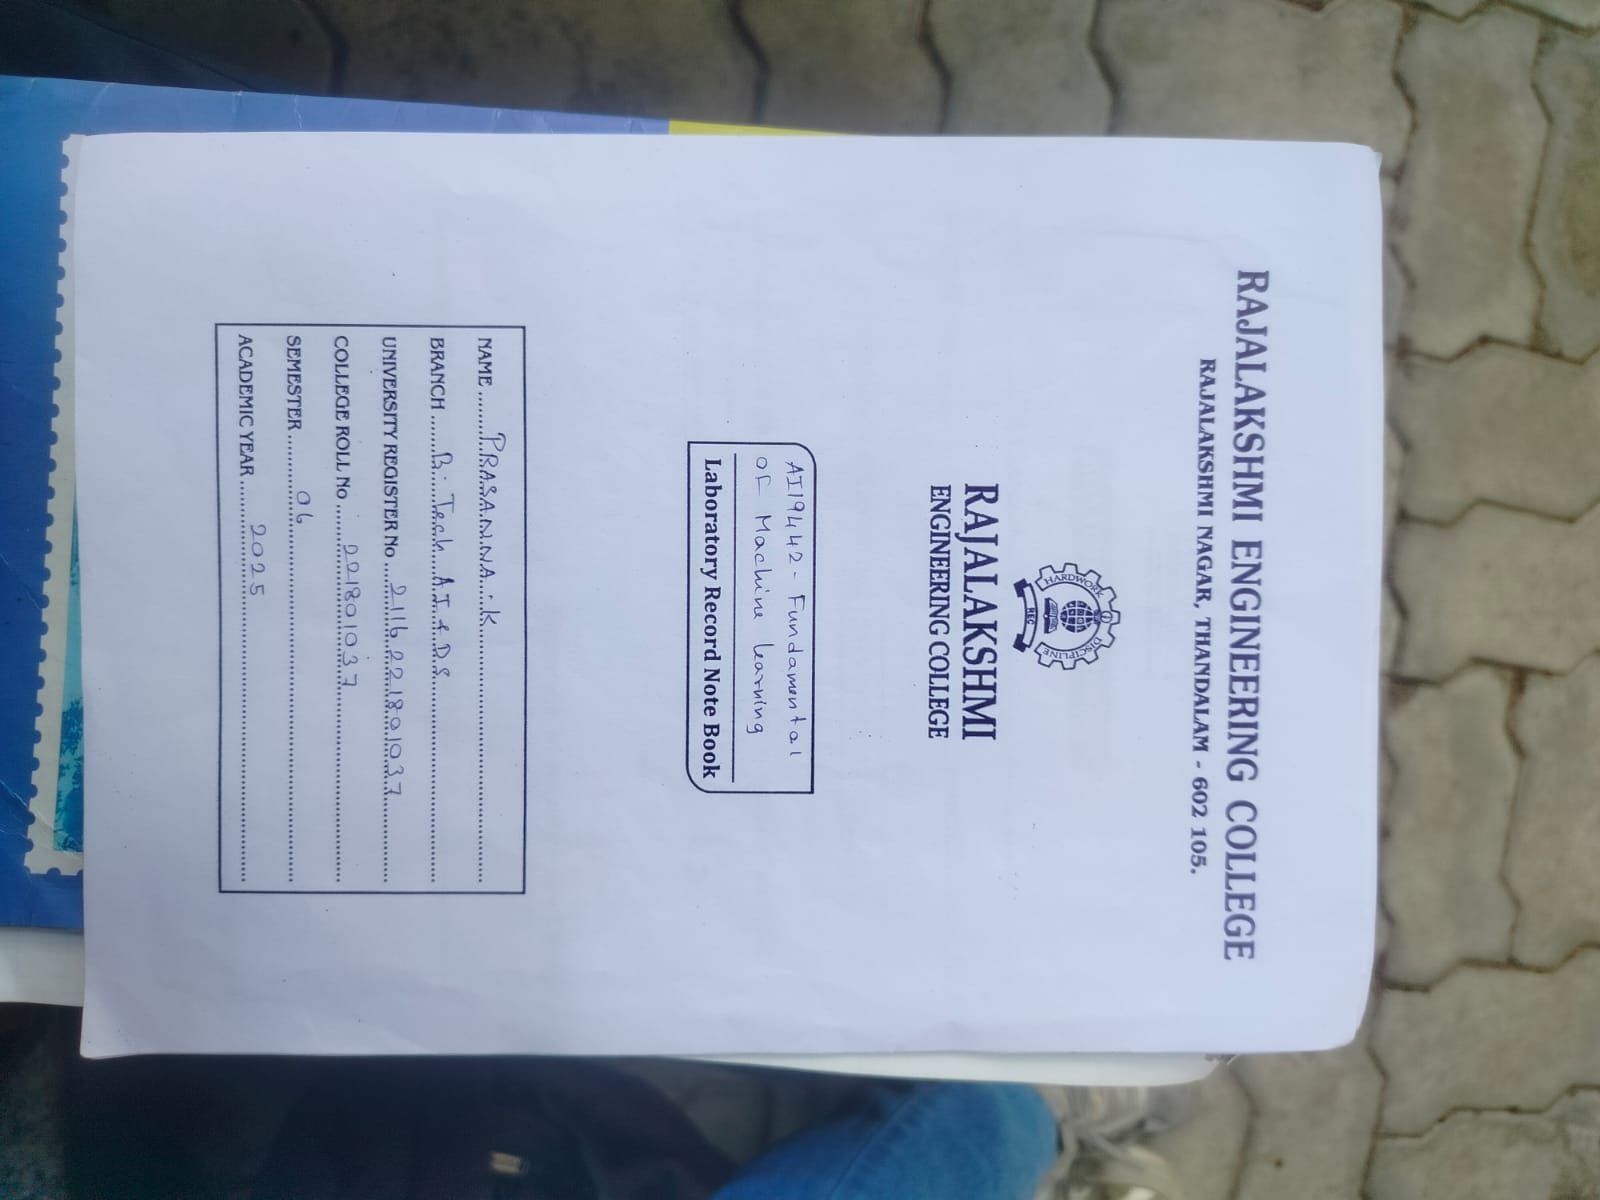 RAJALAKSHMI ENGINEERING COLLEGE
RAJALAKSHMI NAGAR, THANDALAM - 602 105.
HARDWORK
DISCIPLINE
REC
RAJALAKSHMI
ENGINEERING COLLEGE
AI19442 - Fundamental
of Machine learning
Laboratory Record Note Book
NAME PRASANNA.K
BRANCH B.Tech AI & DS
UNIVERSITY REGISTER No 2116221801037
COLLEGE ROLL No 221801037
SEMESTER 06
ACADEMIC YEAR 2025